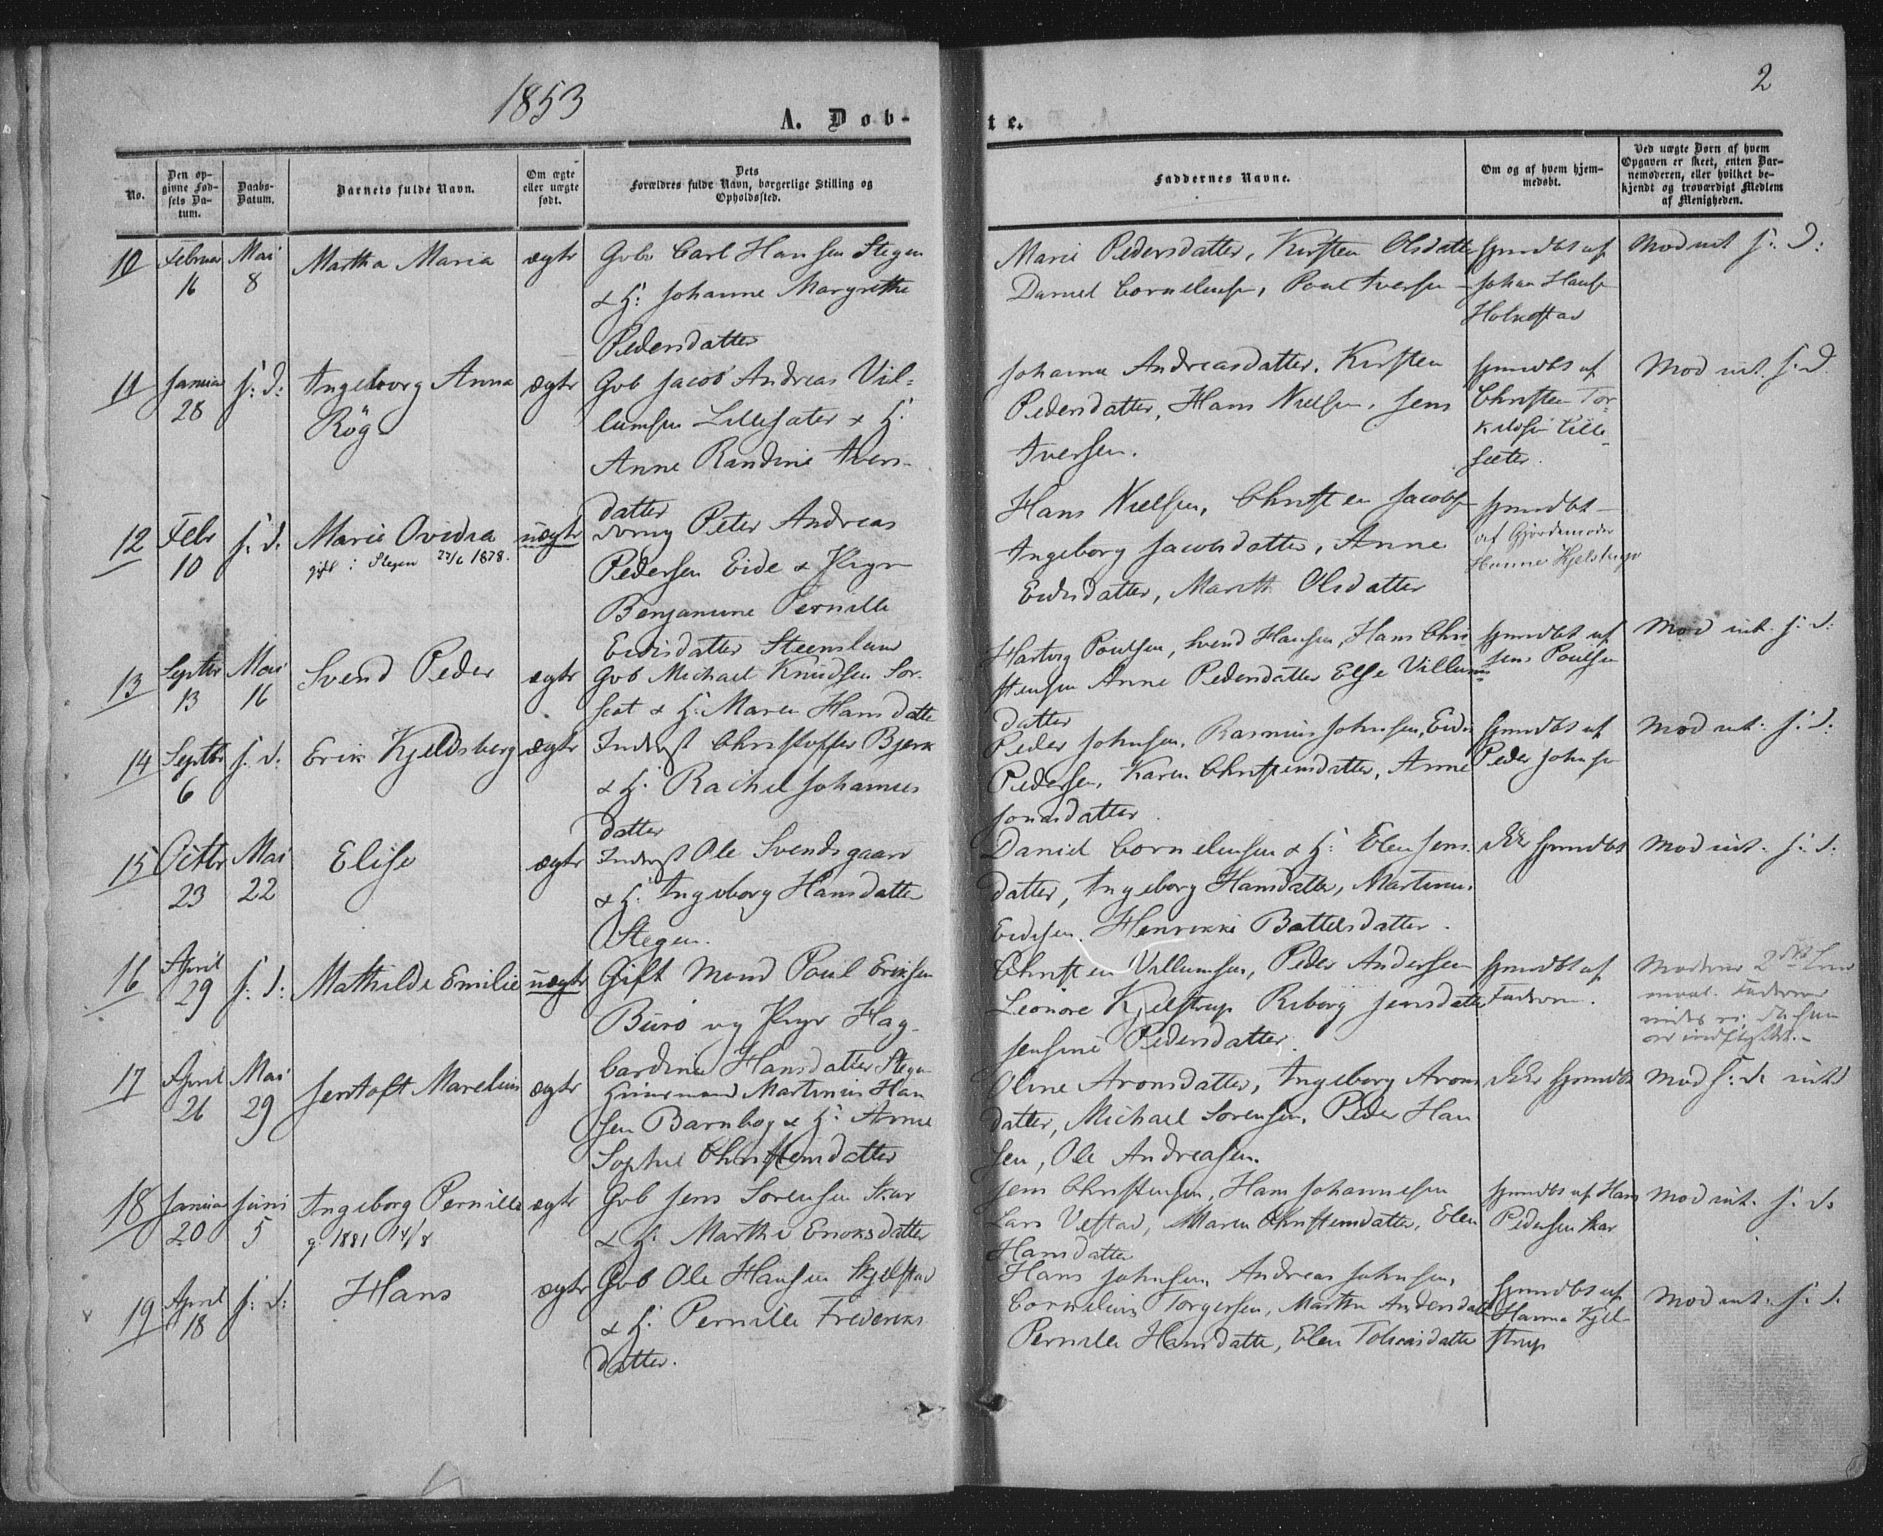 1853
2
A. Døb-
te.
No.
Den op-
givne Fød-
sels Da-
tum.
Daabs-
Datum.
Barnets fulde Navn.
Om ægte
eller uægte
født.
Dets
Forældres fulde Navn, borgerlige Stilling og
Opholdssted.
Faddernes Navne.
Om og af hvem hjem-
medøbt.
Ved uægte Børn af hvem
Opgaven er skeet, enten Bar-
nemoderen, eller hvilket be-
kjendt og troværdigt Medlem
af Menigheden.
10 Februar 16 Mai 8 Martha Maria ægte Gbr Carl Hansen Stegen
& H: Johanne Margrethe
Pedersdatter
Marie Pedersdatter, Kirsten Olsdatter
Daniel Cornelius, Poul Iversen
hjemdbt af
Johan Hans
Holmstad
Mod int. s: d:
11 Januar 28 s: d: Ingeborg Anna
Røg
ægte Gbr Jacob Andreas Vil-
lumsen Lillesæter & H:
Anne Randine Ivers-
datter
Johanna Andreasdatter, Kirsten
Pedersdatter, Hans Nielsen, Jens
Iversen.
hjemdbt af
Christen Tor-
kildsen Lille-
sæter.
Mod int. s: d
12 Febr 10 s: d: Marie Ovidia
gift i Stegen 1878.
uægte Peter Andreas
Pedersen Eide & Pige
Benjamine Pernille
Eidisdatter Steensland
Hans Nielsen, Christen Jacobs
Ingeborg Jacobsdatter, Anne
Eidisdatter, Marith Olsdatter
hjemdbt
af Gjordemoder
Hanne Kjelstrup
13 Septbr 13 Mai 16 Svend Peder ægte Gbr Michael Knudsen Sor-
& H: Maren Hansdatter
Hartvig Poulsen, Svend Hansen, Hans Chri
stensen Anne Pedersdatter Else Villums
datter
hjemdbt af
Jens Poulsen
Mod int. s: d:
14 Septbr 6 s: d: Erik Kjeldsberg ægte Inderst Christoffer Bjerk
& H: Rachel Johannes
datter
Peder Johnsen, Rasmus Johnsen, Eidis
Pedersen, Karen Christensdatter, Anne
Jonasdatter.
hjemdbt af
Peder Johnsen
Mod int: s: d:
15 Octbr 23 Mai 22 Elise ægte Inderst Ole Svendsgaard
& H: Ingeborg Hansdatter
Stegen.
Daniel Cornelius­en & H: Elen Jens
datter, Ingeborg Hansdatter, Martinus
Eidisen, Henrikke Battelsdatter.
Ikke hjemdbt
Mod int. s: d:
16 April 29 s: d: Mathilde Emilie uægte Gift Mand Paul Eriksen
Burø og Pige Hag-
bardine Hansdatter Stegen
Christen Villumsen, Peder Andersen
Leonore Kjelstrup Riborg Jensdatter
Jensine Pedersdatter.
hjemdbt af
Faderen.
Moderens 2det
17 April 26 Mai 29 Jentoft Marelius ægte Huusmand Martinus Han
sen Barnbog & H: Anne
Sophie Christensdatter
Oline Aronsdatter, Ingeborg Arons
datter, Michael Sørensen, Peder Han
sen, Ole Andreasen.
Ikke hjemdbt
Mod s: d: int
18 Januar 20 Juni 5 Ingeborg Pernille
g. 1881 14/8
ægte Gbr Jens Sørensen Skar
& H: Marthe Eriksdatter
Jens Christensen, Hans Johannesen
Lars Vestad, Maren Christensdatter, Elen
Hansdatter
hjemdbt af Hans
Pedersen Skar
Mod int. s: d:
19 April 18 s: d: Hans ægte Gbr Ole Hansen Skjelstad
& H: Pernille Frederiks
datter.
Hans Johnsen, Andreas Johnsen,
Cornelius Torgersen, Martha Andersdatter
Pernille Hansdatter, Elen Tobiasdatter
hjemdbt af
Hanna Kjel-
strup
Mod int. s: d.